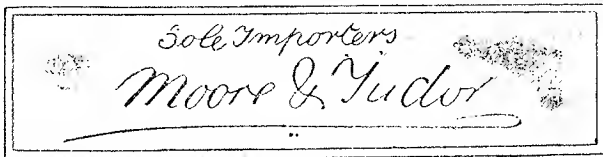 Sole Importers
Moore & Tudor